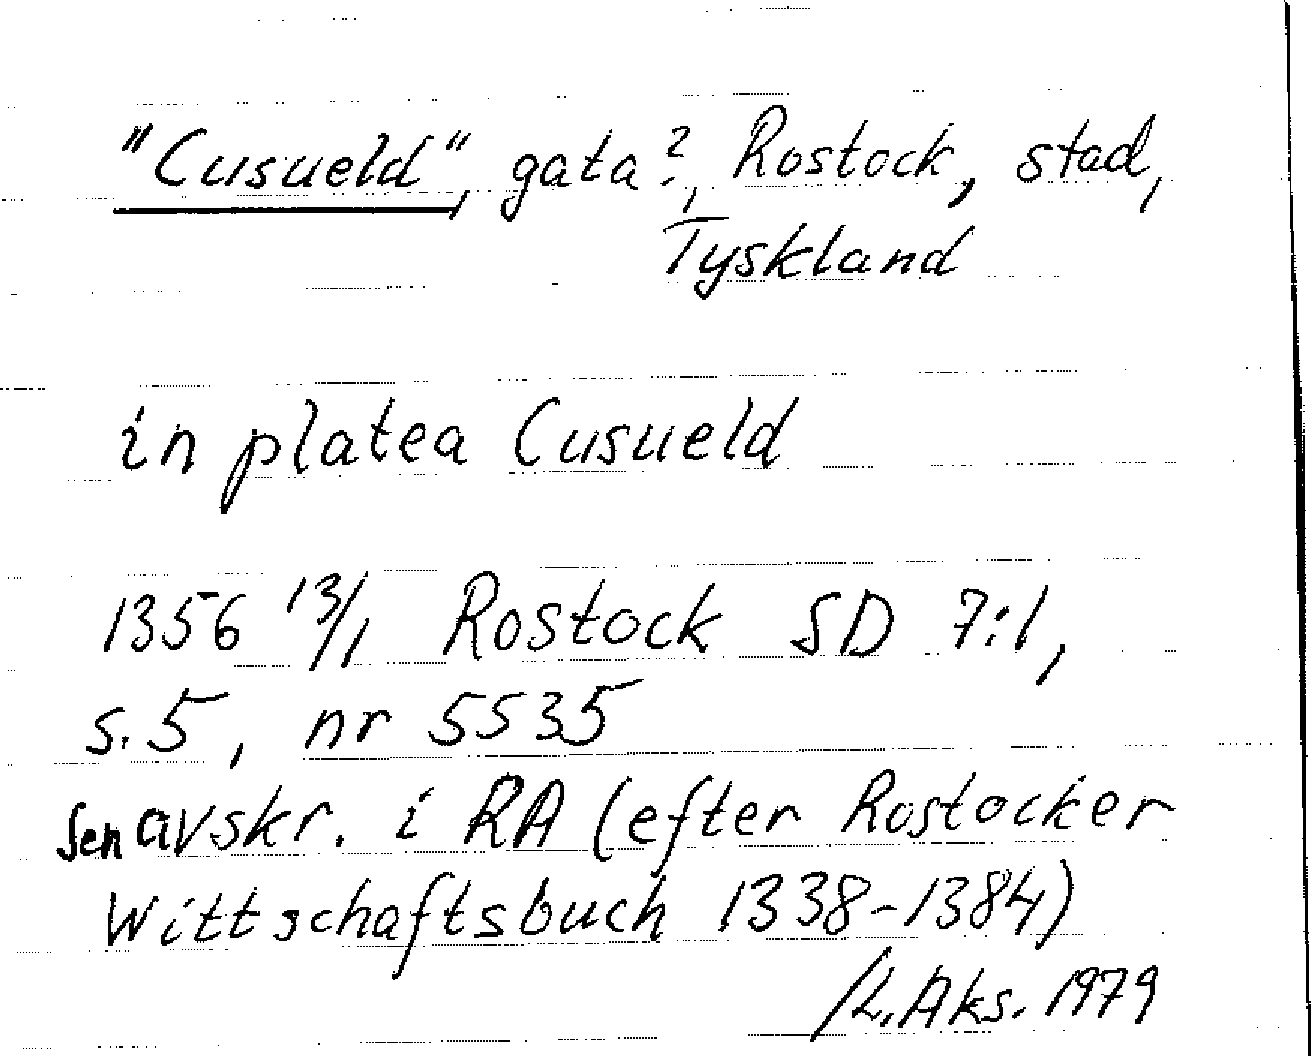 "Cusueld", gata?, Rostock, stad,
Tyskland
in platea Cusueld
1356 13/1 Rostock SD 7:1,
s. 5, nr 5535
sen avskr. i RA (efter Rostocker
Wittschaftsbuch 1338-1384)
/L. Aks. 1979